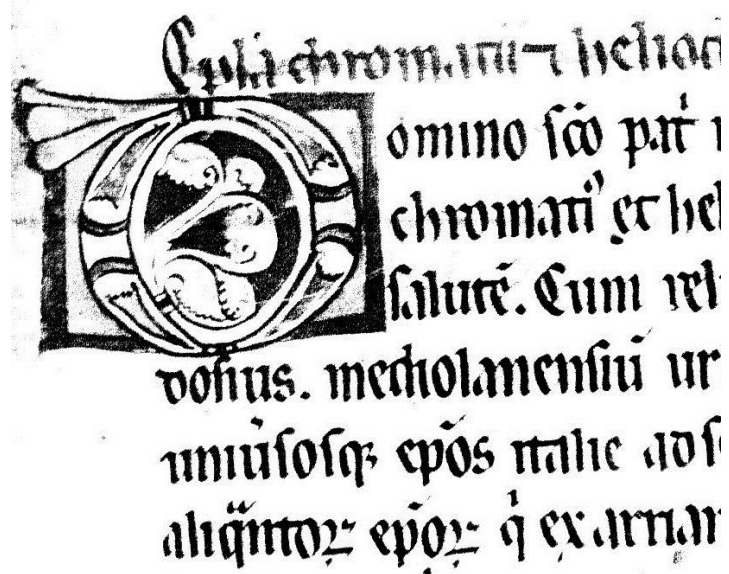 Epl'a chromatii ⁊ heliod
Domino sc̄o pat̄
chromati᾽ et hel
salutē. Cum rel
dosius. mediolanensiū ur
uniūsosq; ep̄os italie ad s
aliq̄ntoꝝ ep̄oꝝ q̇ ex arrian